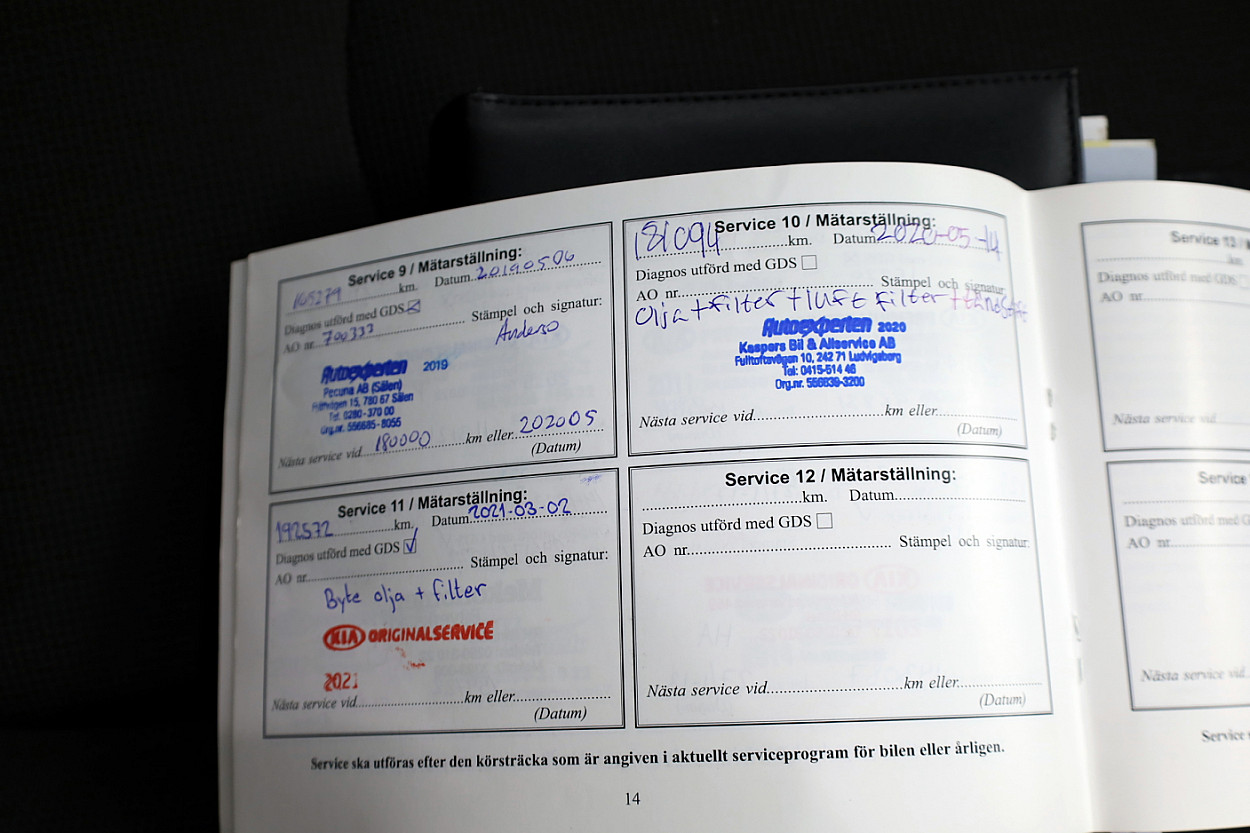 Service 9 / Mätarställning:
165279 km. Datum 20190506
Diagnos utförd med GDS
AO nr. 700333 Stämpel och signatur:
Autoexperten 2019
Pecuna AB (Sälen)
15, 780 67 Sälen
Tel. 0280-370 00
Org.nr. 556685-8055
Nästa service vid 180000 km eller 202005
(Datum)
Service 10 / Mätarställning:
181094 km. Datum 2020-05-14
Diagnos utförd med GDS
AO nr. Stämpel och signatur:
Olja + filter + luft filter +
Autoexperten 2020
Kaspers Bil & Allservice AB
Fulltoftavägen 10, 242 71 Ludvigsborg
Tel: 0415-514 46
Org.nr. 556839-3200
Nästa service vid km eller
(Datum)
Service 11 / Mätarställning:
192572 km. Datum 2021-03-02
Diagnos utförd med GDS
AO nr. Stämpel och signatur:
Byte olja + filter
KIA ORIGINALSERVICE
2021
Nästa service vid km eller
(Datum)
Service 12 / Mätarställning:
km. Datum
Diagnos utförd med GDS
AO nr. Stämpel och signatur:
Nästa service vid km eller
(Datum)
Service ska utföras efter den körsträcka som är angiven i aktuellt serviceprogram för bilen eller årligen.
14
Service 13 /
km.
Diagnos utförd med GDS
AO nr.
Nästa service vid
Service
Diagnos utförd med GDS
AO nr.
Nästa service vid
Service